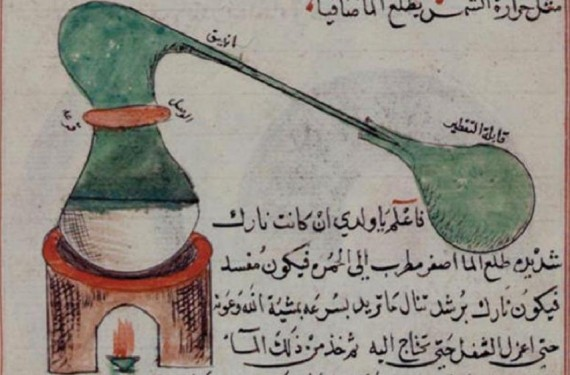 مثل حرارة الشمس يطلع الما صافيا
انبيق
الوصل
قرعه
قابلة التقطير
فاعلم يا ولدي ان كانت نارك
شديده طلع الما اصفر مطرب الى الحمره فيكون مفسد
فيكون نارك برشد تنال ما تريد بسرعه بمشية الله وعونه
حتى اعزل الشغل حتى تحتاج اليه ثم خذ من ذلك الما